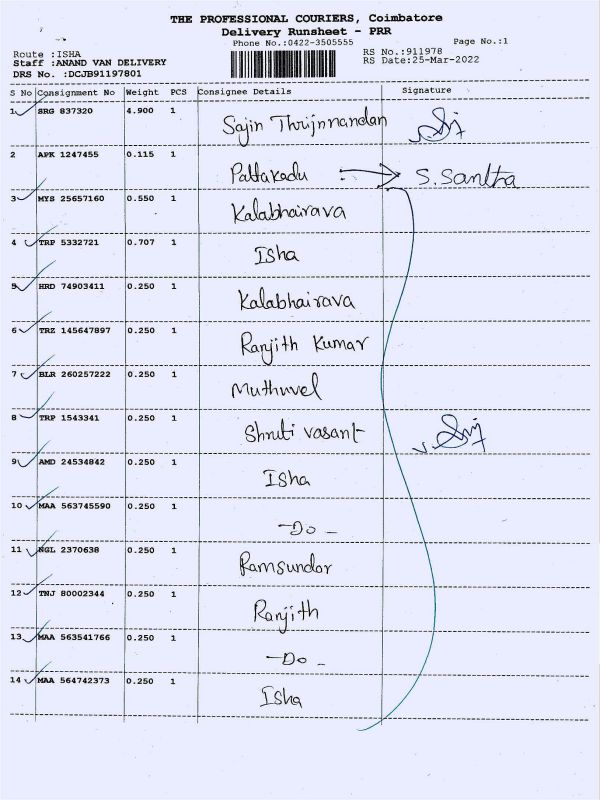 THE PROFESSIONAL COURIERS, Coimbatore
Delivery Runsheet - PRR
Phone No.:0422-3505555 Page No.:1
Route :ISHA RS No.:911978
Staff :ANAND VAN DELIVERY RS Date:25-Mar-2022
DRS No. :DCJB91197801
S No Consignment No Weight PCS Consignee Details Signature
1 SRG 837320 4.900 1 Sajin
2 APK 1247455 0.115 1 Pattakadu S. Santha
3 MYS 25657160 0.550 1 Kalabhairava
4 TRP 5332721 0.707 1 Isha
5 HRD 74903411 0.250 1 Kalabhairava
6 TRZ 145647897 0.250 1 Ranjith Kumar
7 BLR 260257222 0.250 1 Muthuvel
8 TRP 1543341 0.250 1 Shruti vasant
9 AMD 24534842 0.250 1 Isha
10 MAA 563745590 0.250 1 -Do-
11 NGL 2370638 0.250 1 Ramsundar
12 TNJ 80002344 0.250 1 Ranjith
13 MAA 563541766 0.250 1 -Do-
14 MAA 564742373 0.250 1 Isha